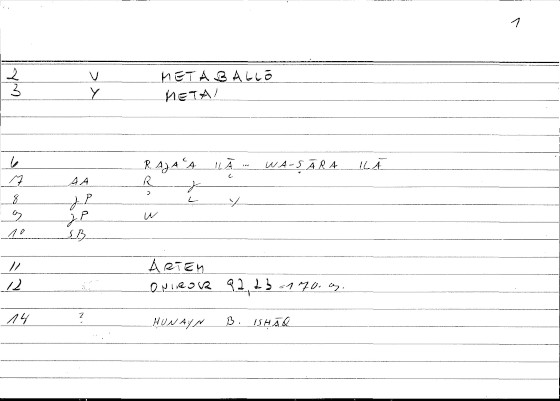 1
2 V METABALLŌ
3 Y META/
6 RAJAʿA ILĀ - WA-ṢĀRA ILĀ
7 AA R J ʿ
8 JP ʾ L Y
9 JP W
10 SB
11 ARTEM
12 ONIROCR 92,23 = 170.9.
14 ? HUNAYN B. ISHĀQ